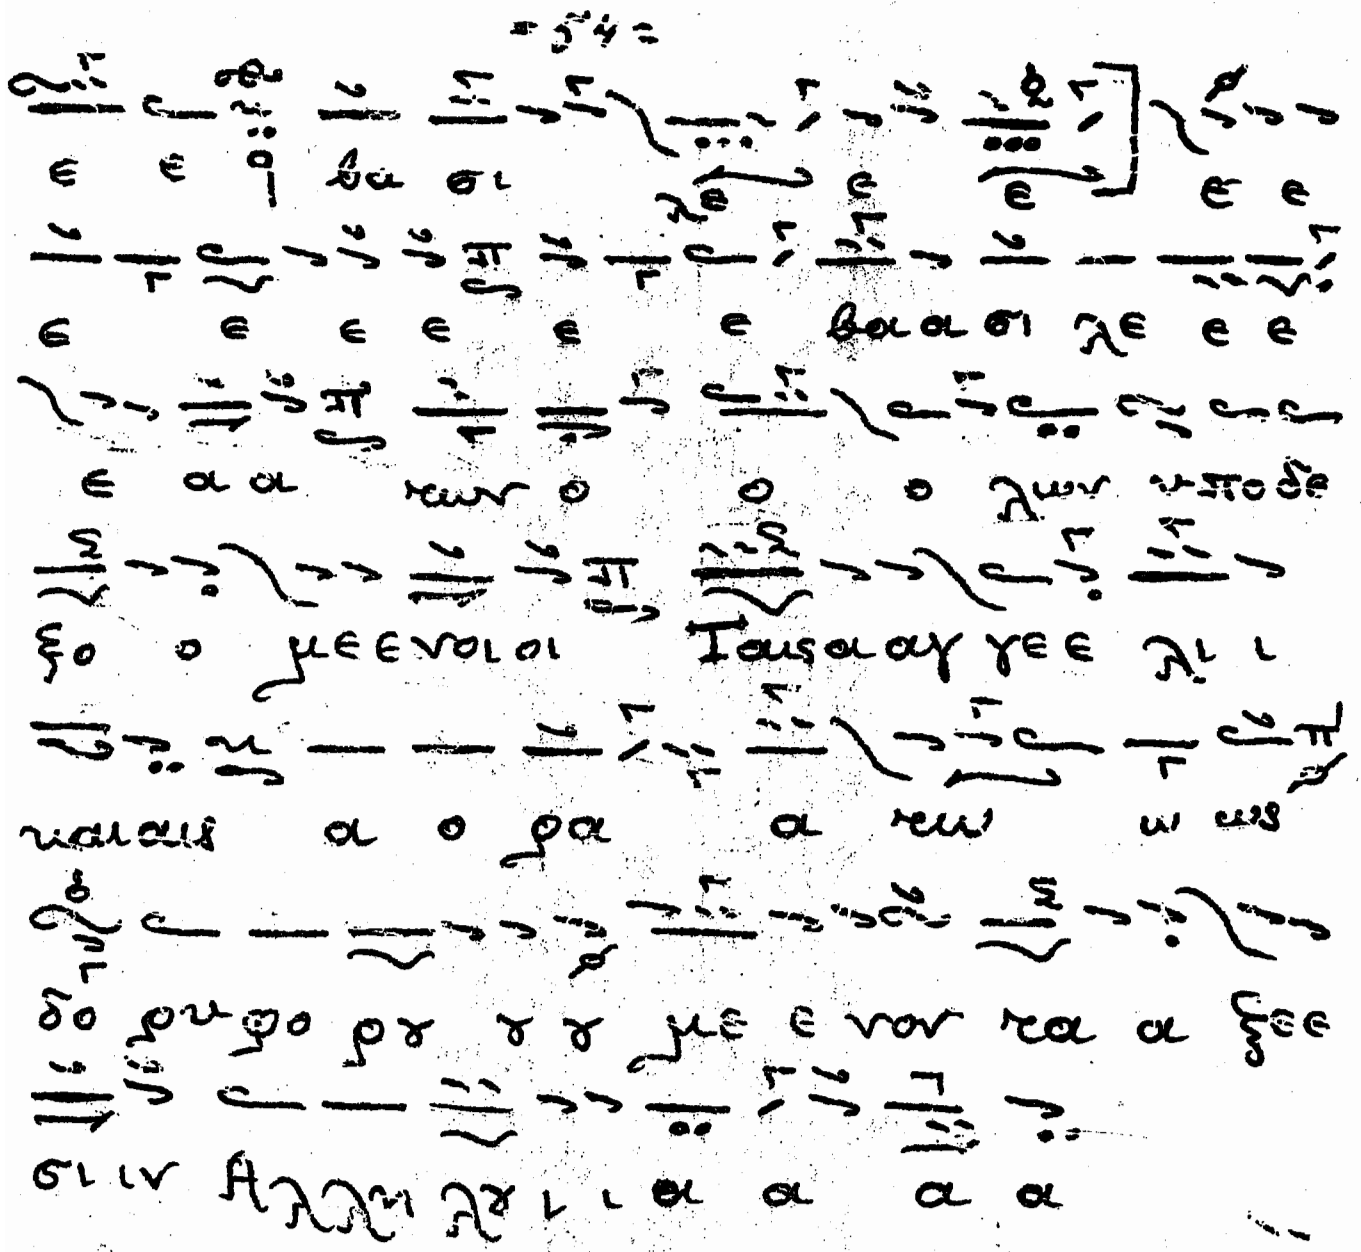 = 54 =
ε ε βα σι λε ε ε ε ε
ε ε ε ε ε ε βα α σι λε ε ε
ε α α των ο ο ο λων υπο δε
ξο ο με ε νοι οι Ταις α αγ γε ε λι ι
καιαις α ο ρα α τω ω ως
δο ρυ φο ρȣ ȣ ȣ με ε νον τα α ξε ε
σι ιν Αλλη λȣ ι ι α α α α